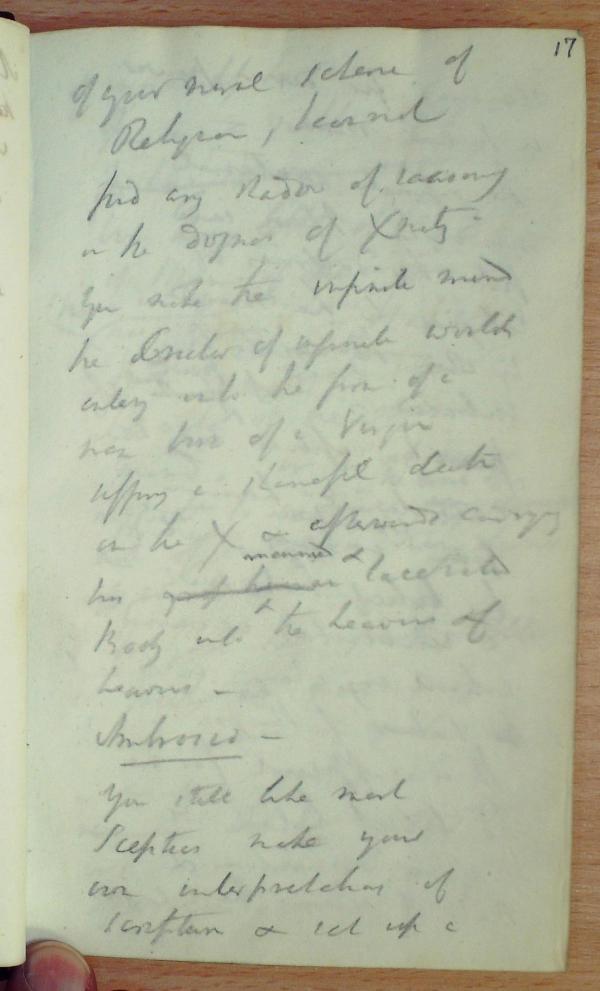 17
of your moral scheme of
Religion, I cannot
find any shadow of reasoning
in the dogmas of Xnity -
You make the infinite mind
the Creator of infinite worlds
entering into the form of a
man born of a Virgin
suffering a shameful death
on the X & afterwards carrying
his maimed & lacerated
Body into the heavens of
heavens -
Ambrosio -
You still like most
Sceptics make your
own interpretations of
Scripture & set up a